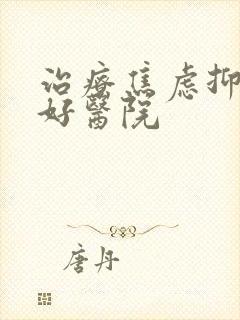 治疗焦虑抑
好醫院
唐丹